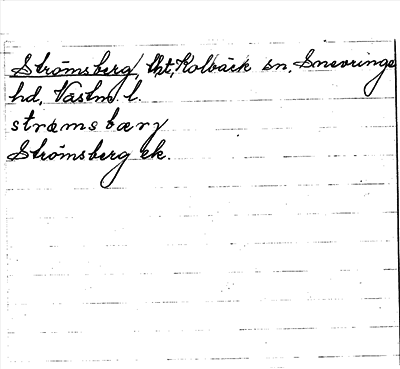 Strömsberg, lht, Kolbäck sn, Snevringe
hd, Västm. l.
strœmsbœrj
Strömsberg ek.